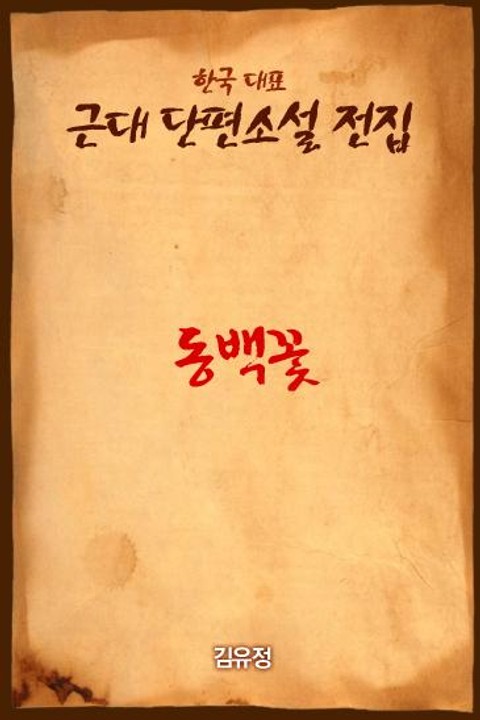 한국 대표
근대 단편소설 전집
동백꽃
김유정